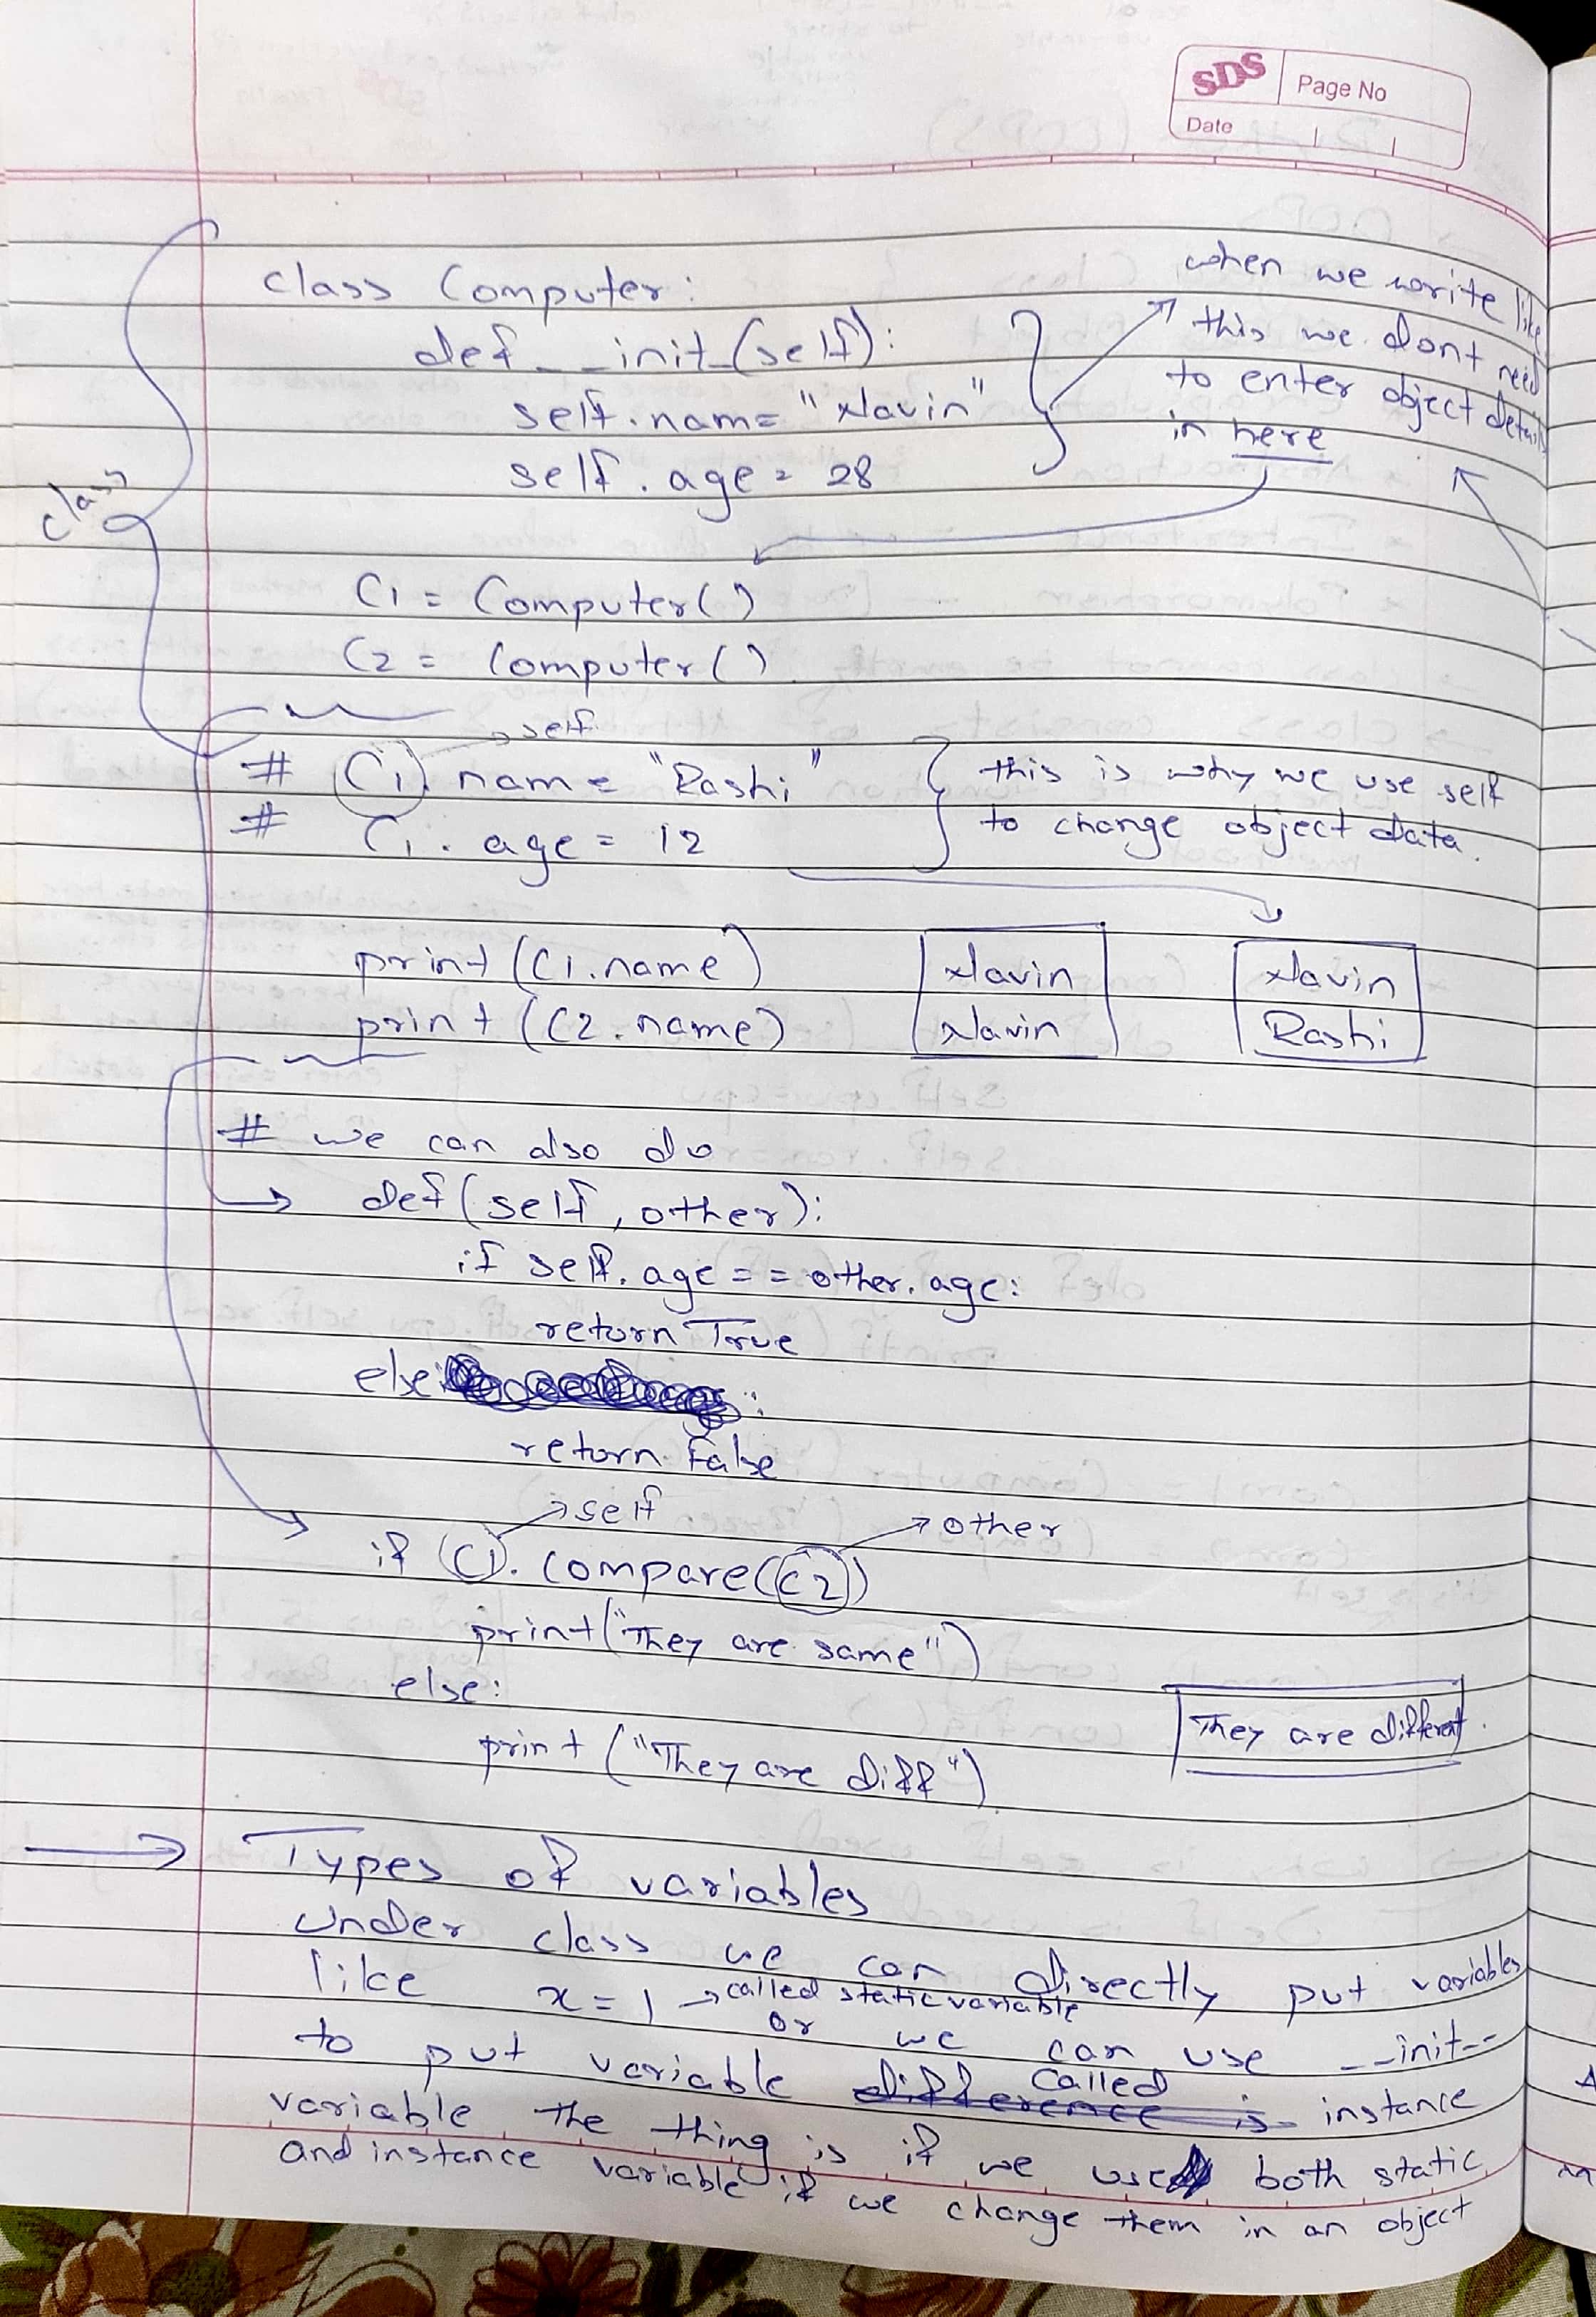 SDS Page No
Date
class Computer:
def __init_(self):
self.name= "Navin"
self.age = 28
when we write like
this we dont need
to enter object details
in here
class
C1 = Computer()
C2 = Computer()
self
# C1. name = "Rashi"
# C1. age = 12
this is why we use self
to change object data.
print (C1.name)
print (C2.name)
Navin
Navin
Navin
Rashi
# we can also do
def (self, other):
if self.age == other.age:
return True
else:
return False
self
other
if C1. compare(C2)
print("They are same")
else:
print ("They are diff")
They are different.
Types of variables
Under class we can directly put variables
like x = 1 called static variable
or we can use __init--
to put variable difference is called instance
variable the thing is if we use both static
and instance variable if we change them in an object